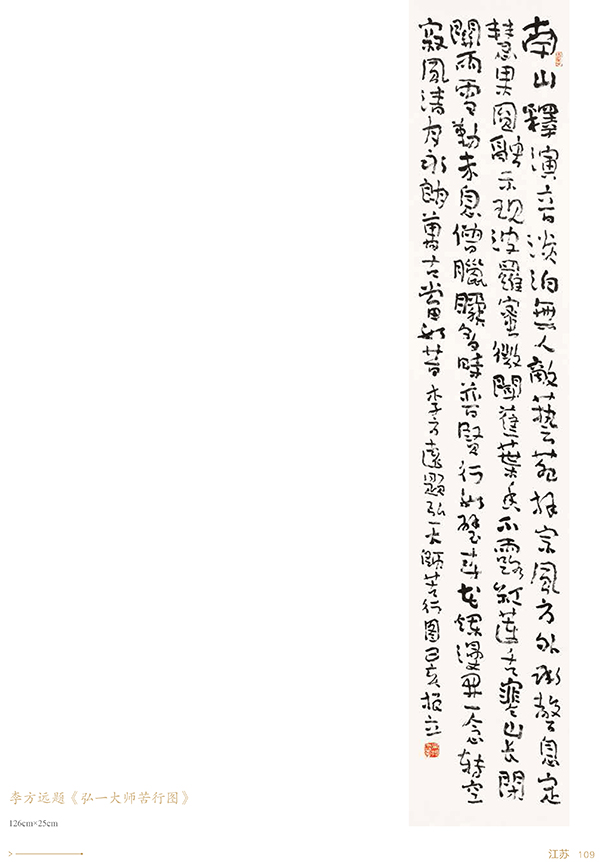 南山釋演音淡泊無人敵藝苑宗風方外息定
慧果圓融示現波羅蜜微聞舊葉香不露紅蓮舌寒山長閉
關雨雪勤未息僧臘多時前賢行如璧春花爛漫開一念轉空
寂風清月永朗萬古當如昔 李方遠題弘一大師苦行圖己亥振立
李方远题《弘一大师苦行图》
126cm×25cm
江苏 109